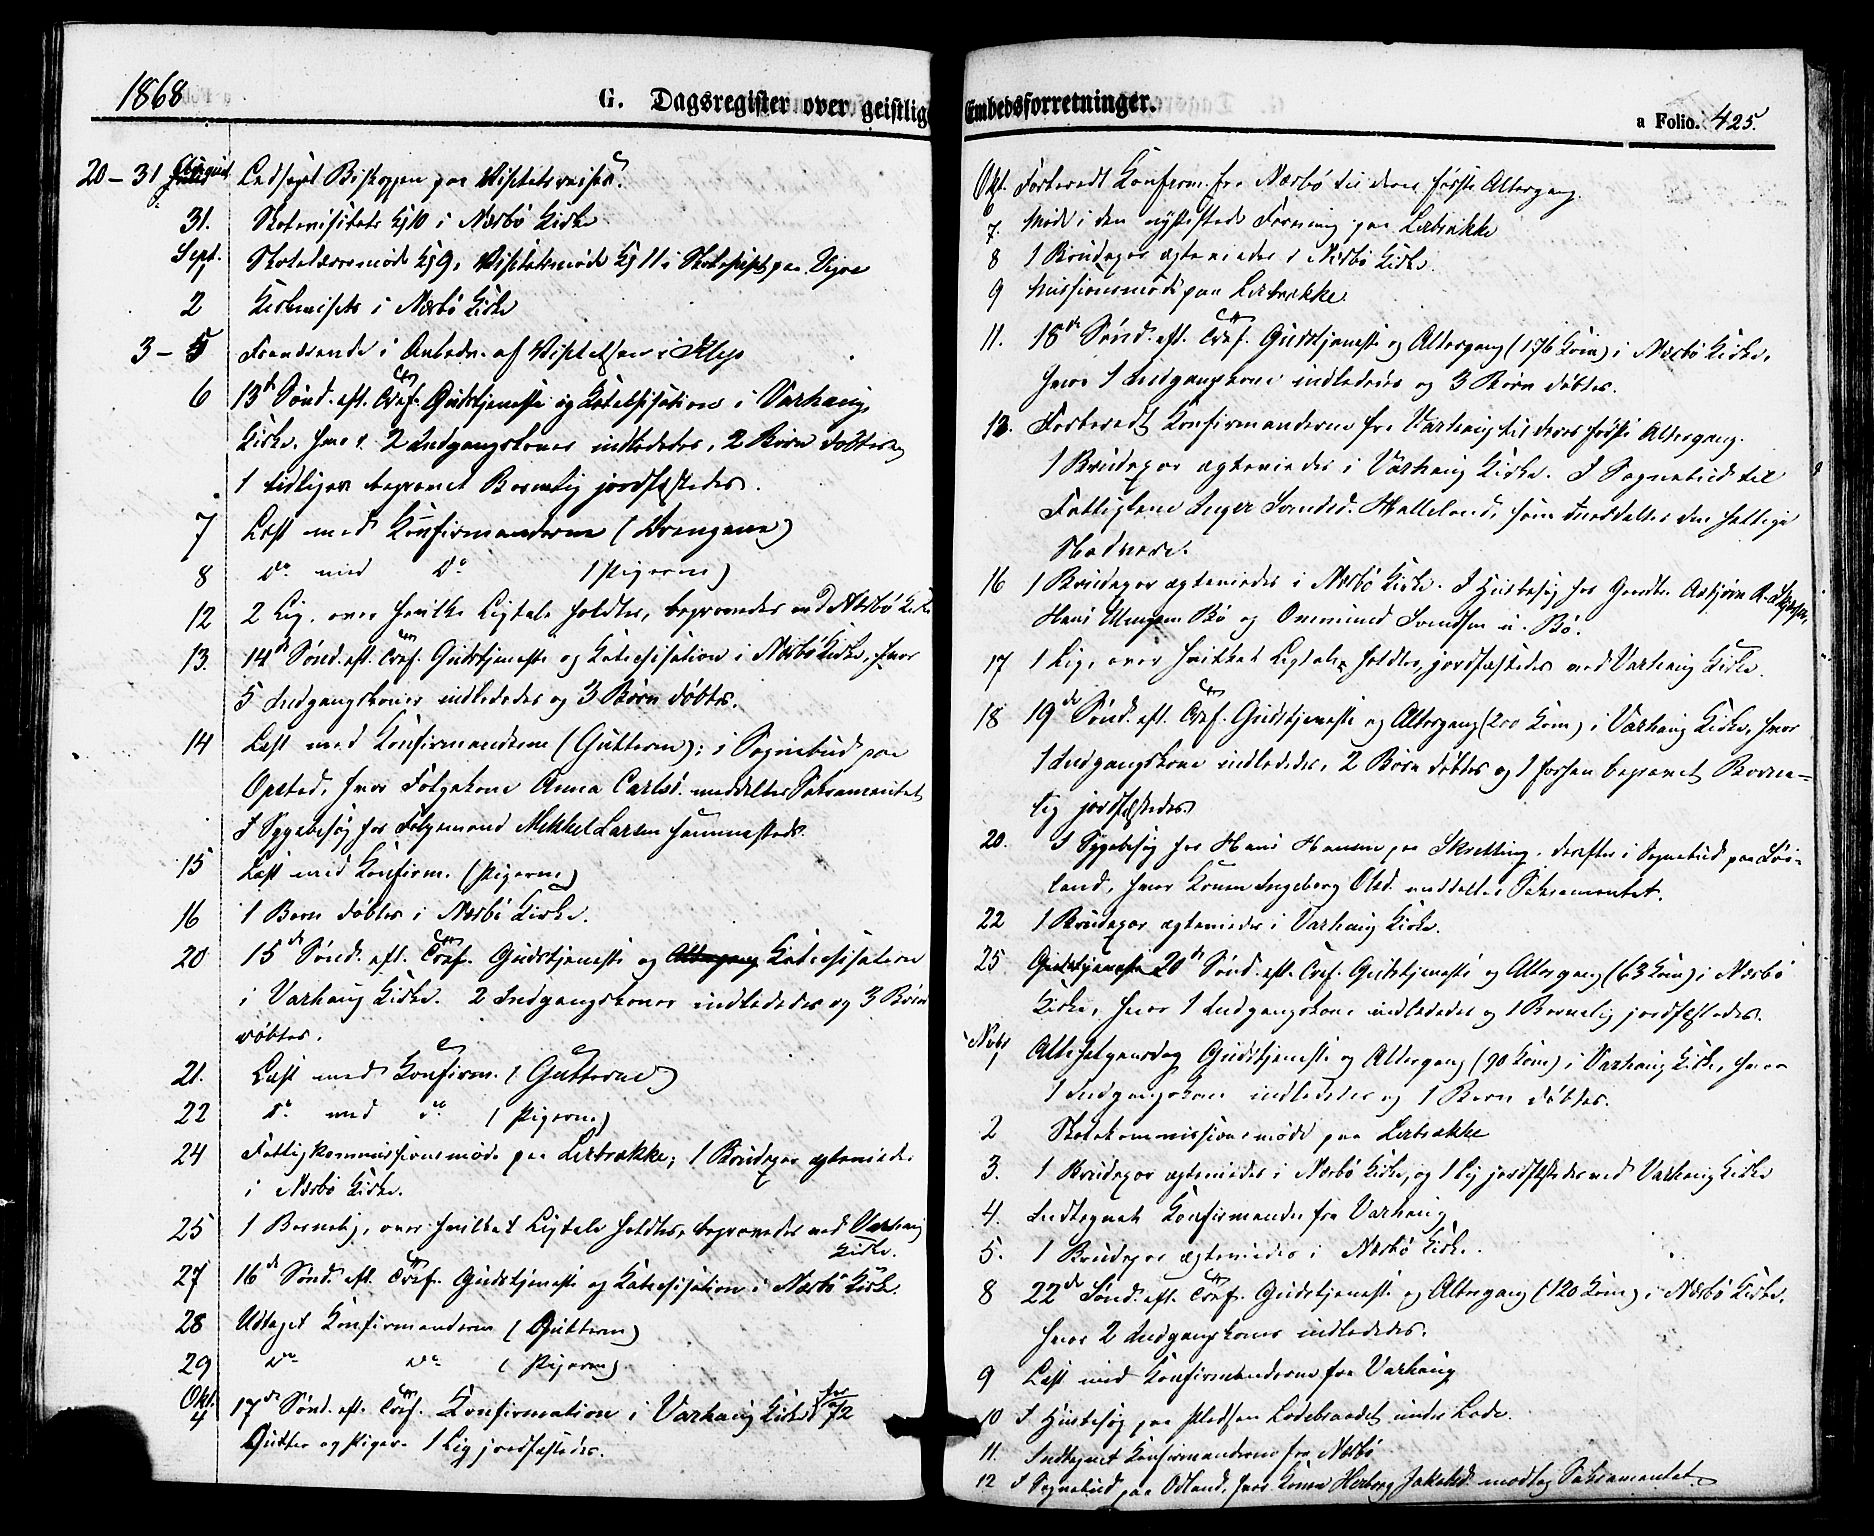 1868
G. Dagsregister over geistlige
20–31 August Ledsaget Biskoppen paa Visitatsreiser.
31. Skolevisitats Kl 10 i Nærbø Kirke
Sept. 1 Skolelærermøde Kl 9, Visitatsmøde Kl 11 i paa Vigre
2 Kirkevisitats i Nærbø Kirke
3–5 Fraværende i Anledn. af Visitatsen i Klep
6 13de Sønd. eft. Tref. Gudstjeneste og Katekisation i Varhaug
Kirke, hvor 2 Indgangskoner indlededes, 2 Børn døbtes og
1 tidligere begravet Barnelig jordfæstedes.
7 Læst med Konfirmanderne (Drengene)
8 Do med Do (Pigerne)
12 2 Lig, over hvilke Ligtale holdtes, begravedes ved Nærbø Kirke
13. 14de Sønd. eft. Tref. Gudstjeneste og Katekisation i Nærbø Kirke, hvor
5 Indgangskoner indlededes og 3 Børn døbtes.
14 Læst med Konfirmanderne (Gutterne); i Sognebud paa
Opsted, hvor Følgekone Anna Carlsd. meddeltes Sakramentet
I Sygebesøg hos Følgemand Mikkel Larsen sammesteds.
15 Læst med Konfirm. (Pigerne)
16 1 Barn døbtes i Nærbø Kirke.
20 15de Sønd. eft. Tref. Gudstjeneste og Altergang Katekisation
i Varhaug Kirke. 2 Indgangskoner indlededes og 3 Børn
døbtes.
21. Læst med Konfirm. (Gutterne)
22 Do med do (Pigerne)
24 Fattigkommissionsmøde paa Lerbrække; 1 Brudepar ægteviedes
i Nærbø Kirke.
25 1 Barnelig, over hvilket Ligtale holdtes, begravedes ved Varhaug
Kirke.
27 16de Sønd. eft. Tref. Gudstjeneste og Katekisation i Nærbø Kirke.
28 Udtaget Konfirmanderne (Gutterne)
29 Do Do (Pigerne)
Okt. 4 17de Sønd. eft. Tref. Konfirmation i Varhaug Kirke for 72
Gutter og Piger. 1 Lig jordfæstedes.
Embedsforretninger.
a Folio. 425.
Okt. 6 Forberedt Konfirm. fra Nærbø til deres første Altergang.
7. Møde i den nystiftede Forening paa Lerbrække
8 1 Brudepar ægteviedes i Nærbø Kirke.
9 Missionsmøde paa Lerbrække.
11. 18de Sønd. eft. Tref. Gudstjeneste og Altergang (176 Kom) i Nærbø Kirke,
hvor 1 Indgangskone indlededes og 3 Børn døbtes.
12. Forberedt Konfirmanderne fra Varhaug til deres første Altergang.
1 Brudepar ægteviedes i Varhaug Kirke. I Sognebud til
Fattiglem Inger Svendsd. Halleland, som meddeltes den hellige
Nadvere.
16 1 Brudepar ægteviedes i Nærbø Kirke. I Husbesøg hos Gaardbr. Asbjørn
Hans Bø og Ommund Svendsen i Bø.
17 1 Lig, over hvilket Ligtale holdtes, jordfæstedes ved Varhaug Kirke.
18 19de Sønd. eft. Tref. Gudstjeneste og Altergang (200 Kom) i Varhaug Kirke, hvor
1 Indgangskone indlededes, 2 Børn døbtes og 1 forhen begravet Barne-
lig jordfæstedes
20. I Sygebesøg hos Hans Hansen paa Skretting, derefter i Sognebud paa
land, hvor Konen Ingeborg Olsd. meddeltes Sakramentet.
22 1 Brudepar ægteviedes i Varhaug Kirke.
25 Gudstjeneste 20de Sønd. eft. Tref. Gudstjeneste og Altergang (63 Kom) i Nærbø
Kirke, hvor 1 Indgangskone indlededes og 1 Barnelig jordfæstedes.
Novbr 1 Allehelgensdag Gudstjeneste og Altergang (90 Kom) i Varhaug Kirke, hvor
1 Indgangskone indlededes og 1 Barn døbtes.
2 Skolekommissionsmøde paa Lerbrække
3. 1 Brudepar ægteviedes i Nærbø Kirke, og 1 Lig jordfæstedes ved Varhaug Kirke
4. Indtegnet Konfirmander fra Varhaug
5. 1 Brudepar ægteviedes i Nærbø Kirke.
8 22de Sønd. eft. Tref. Gudstjeneste og Altergang (120 Kom) i Nærbø Kirke,
hvor 2 Indgangskoner indlededes.
9 Læst med Konfirmanderne fra Varhaug
10 I Husbesøg paa Pladsen under Lode.
11. Indtegnet Konfirmanderne fra Nærbø
12 I Sognebud paa Odland, hvor Konen Herborg Jakobsd. modtog Sakramentet.